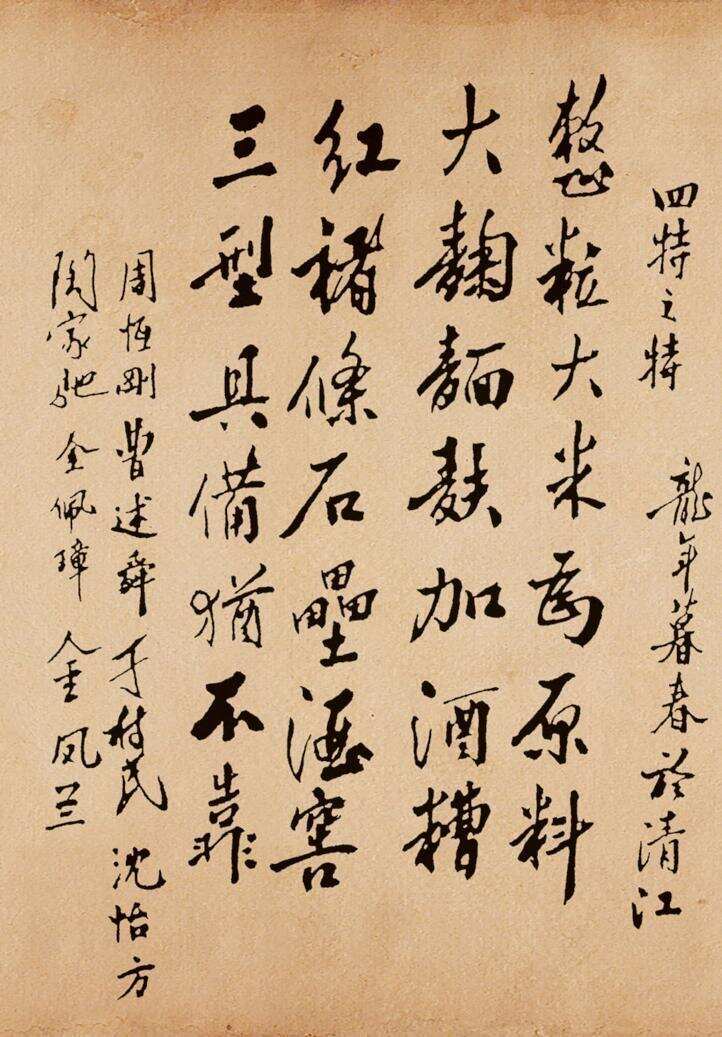 四特之特 龍年暮春於清江
整粒大米為原料
大麯麵麩加酒糟
红褚條石壘酒窖
三型具備猶不靠
周恒剛 曹述舜 于树民 沈怡方
陶家驰 全佩璋 金凤兰